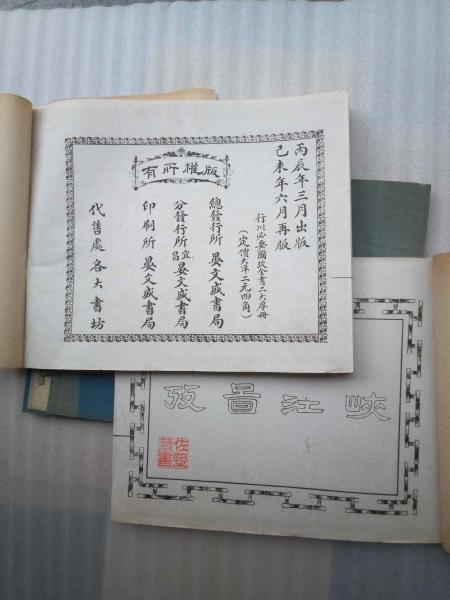 丙辰年三月出版
己未年六月再版
版權所有
行川必要圖攷全書二大厚冊
（定價大洋二元四角）
總發行所 晏文盛書局
分發行所 宜昌 晏文盛書局
印刷所 晏文盛書局
代售處 各大書坊
峽江圖攷